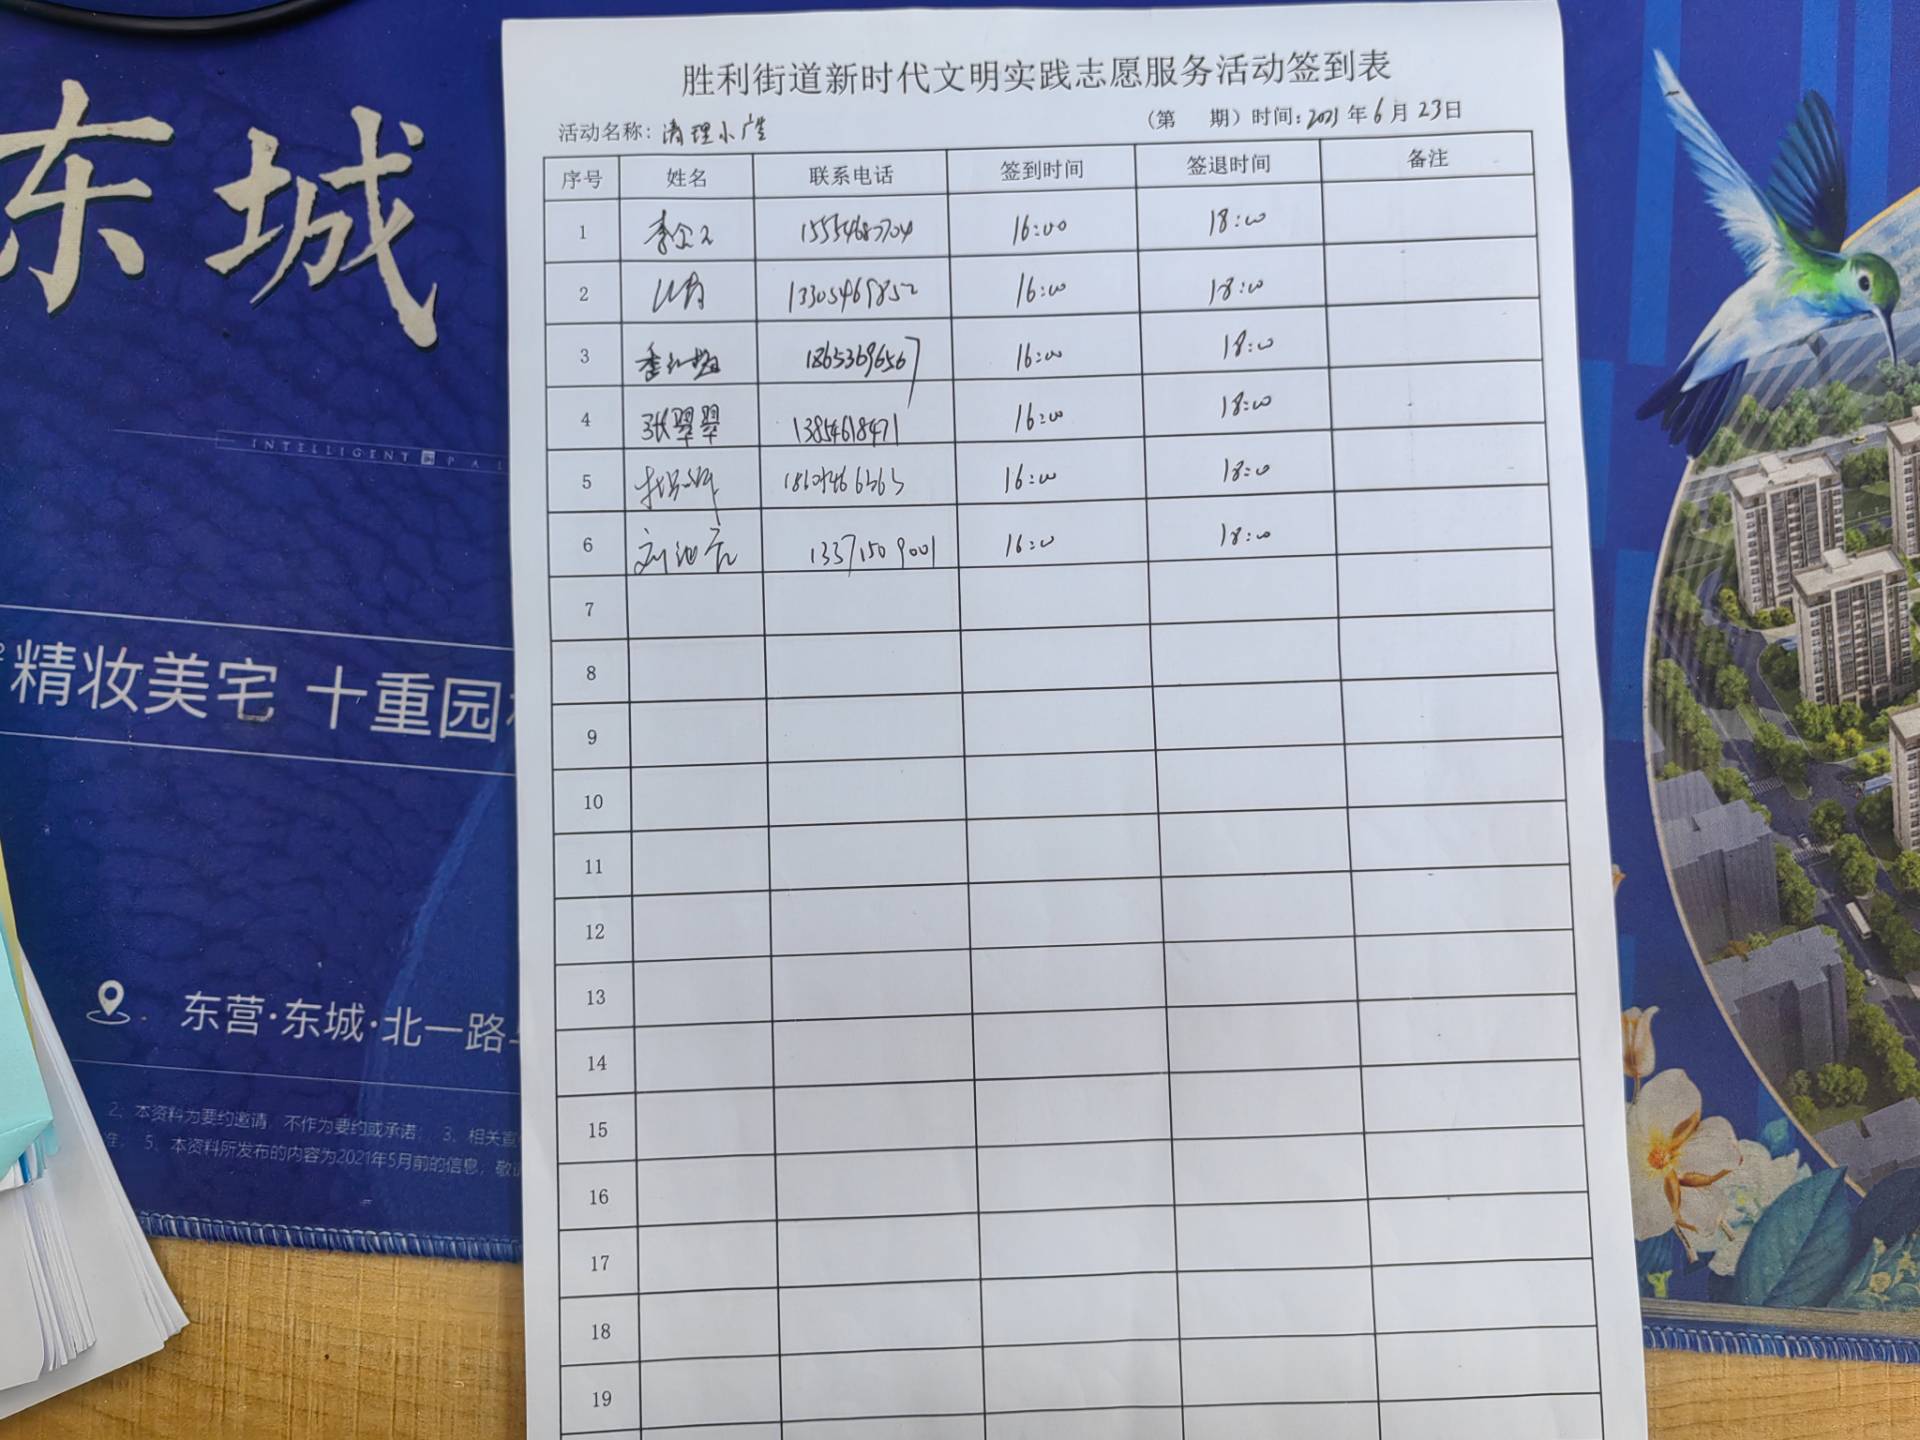 胜利街道新时代文明实践志愿服务活动签到表
活动名称：清理小广告
（第 期）时间：2021年6月23日
序号 姓名 联系电话 签到时间 签退时间 备注
1 16:00 18:00
2 13305469852 16:00 18:00
3 18653696567 16:00 18:00
4 张翠翠 13854618471 16:00 18:00
5 16:00 18:00
6 13371509001 16:00 18:00
7
8
9
10
11
12
13
14
15
16
17
18
19
东城
INTELLIGENT
精妆美宅 十重园
东营·东城·北一路
2、本资料为要约邀请，不作为要约或承诺； 3、相关
5、本资料所发布的内容为2021年5月前的信息，敬